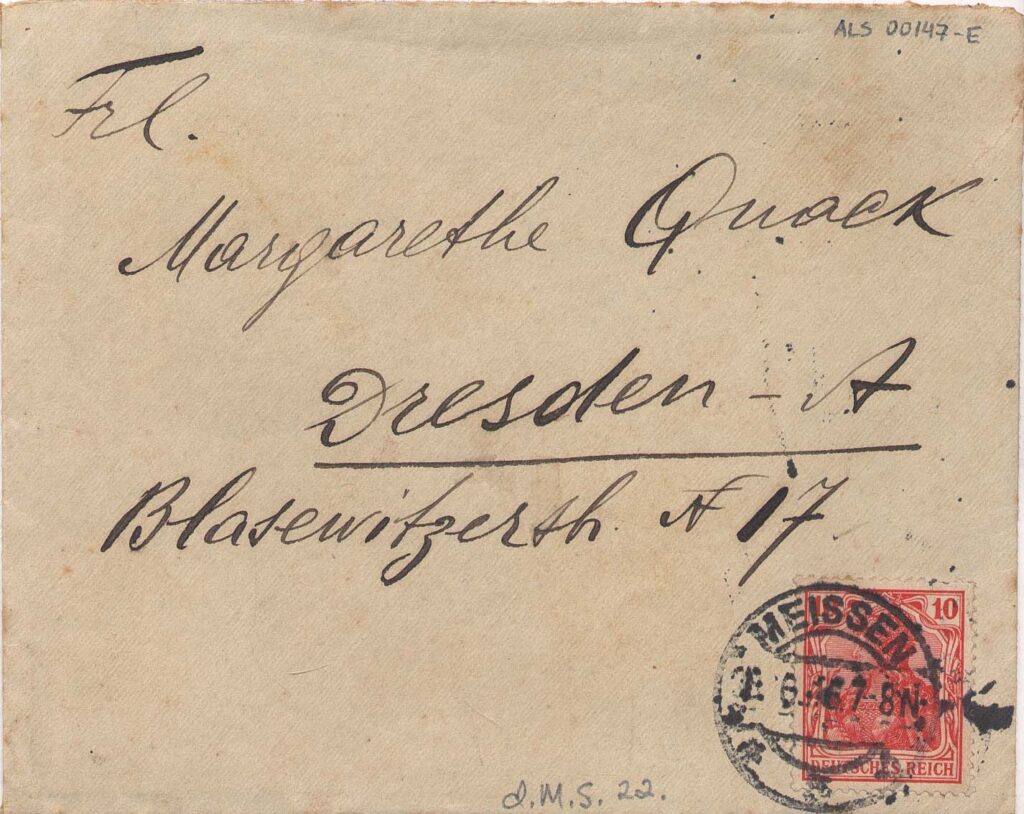 ALS 00147-E
Frl.
Margarethe Quack
Dresden - A
Blasewitzerstr. N 17
10
MEISSEN
7-8N
DEUTSCHES REICH
d.M.S. 22.